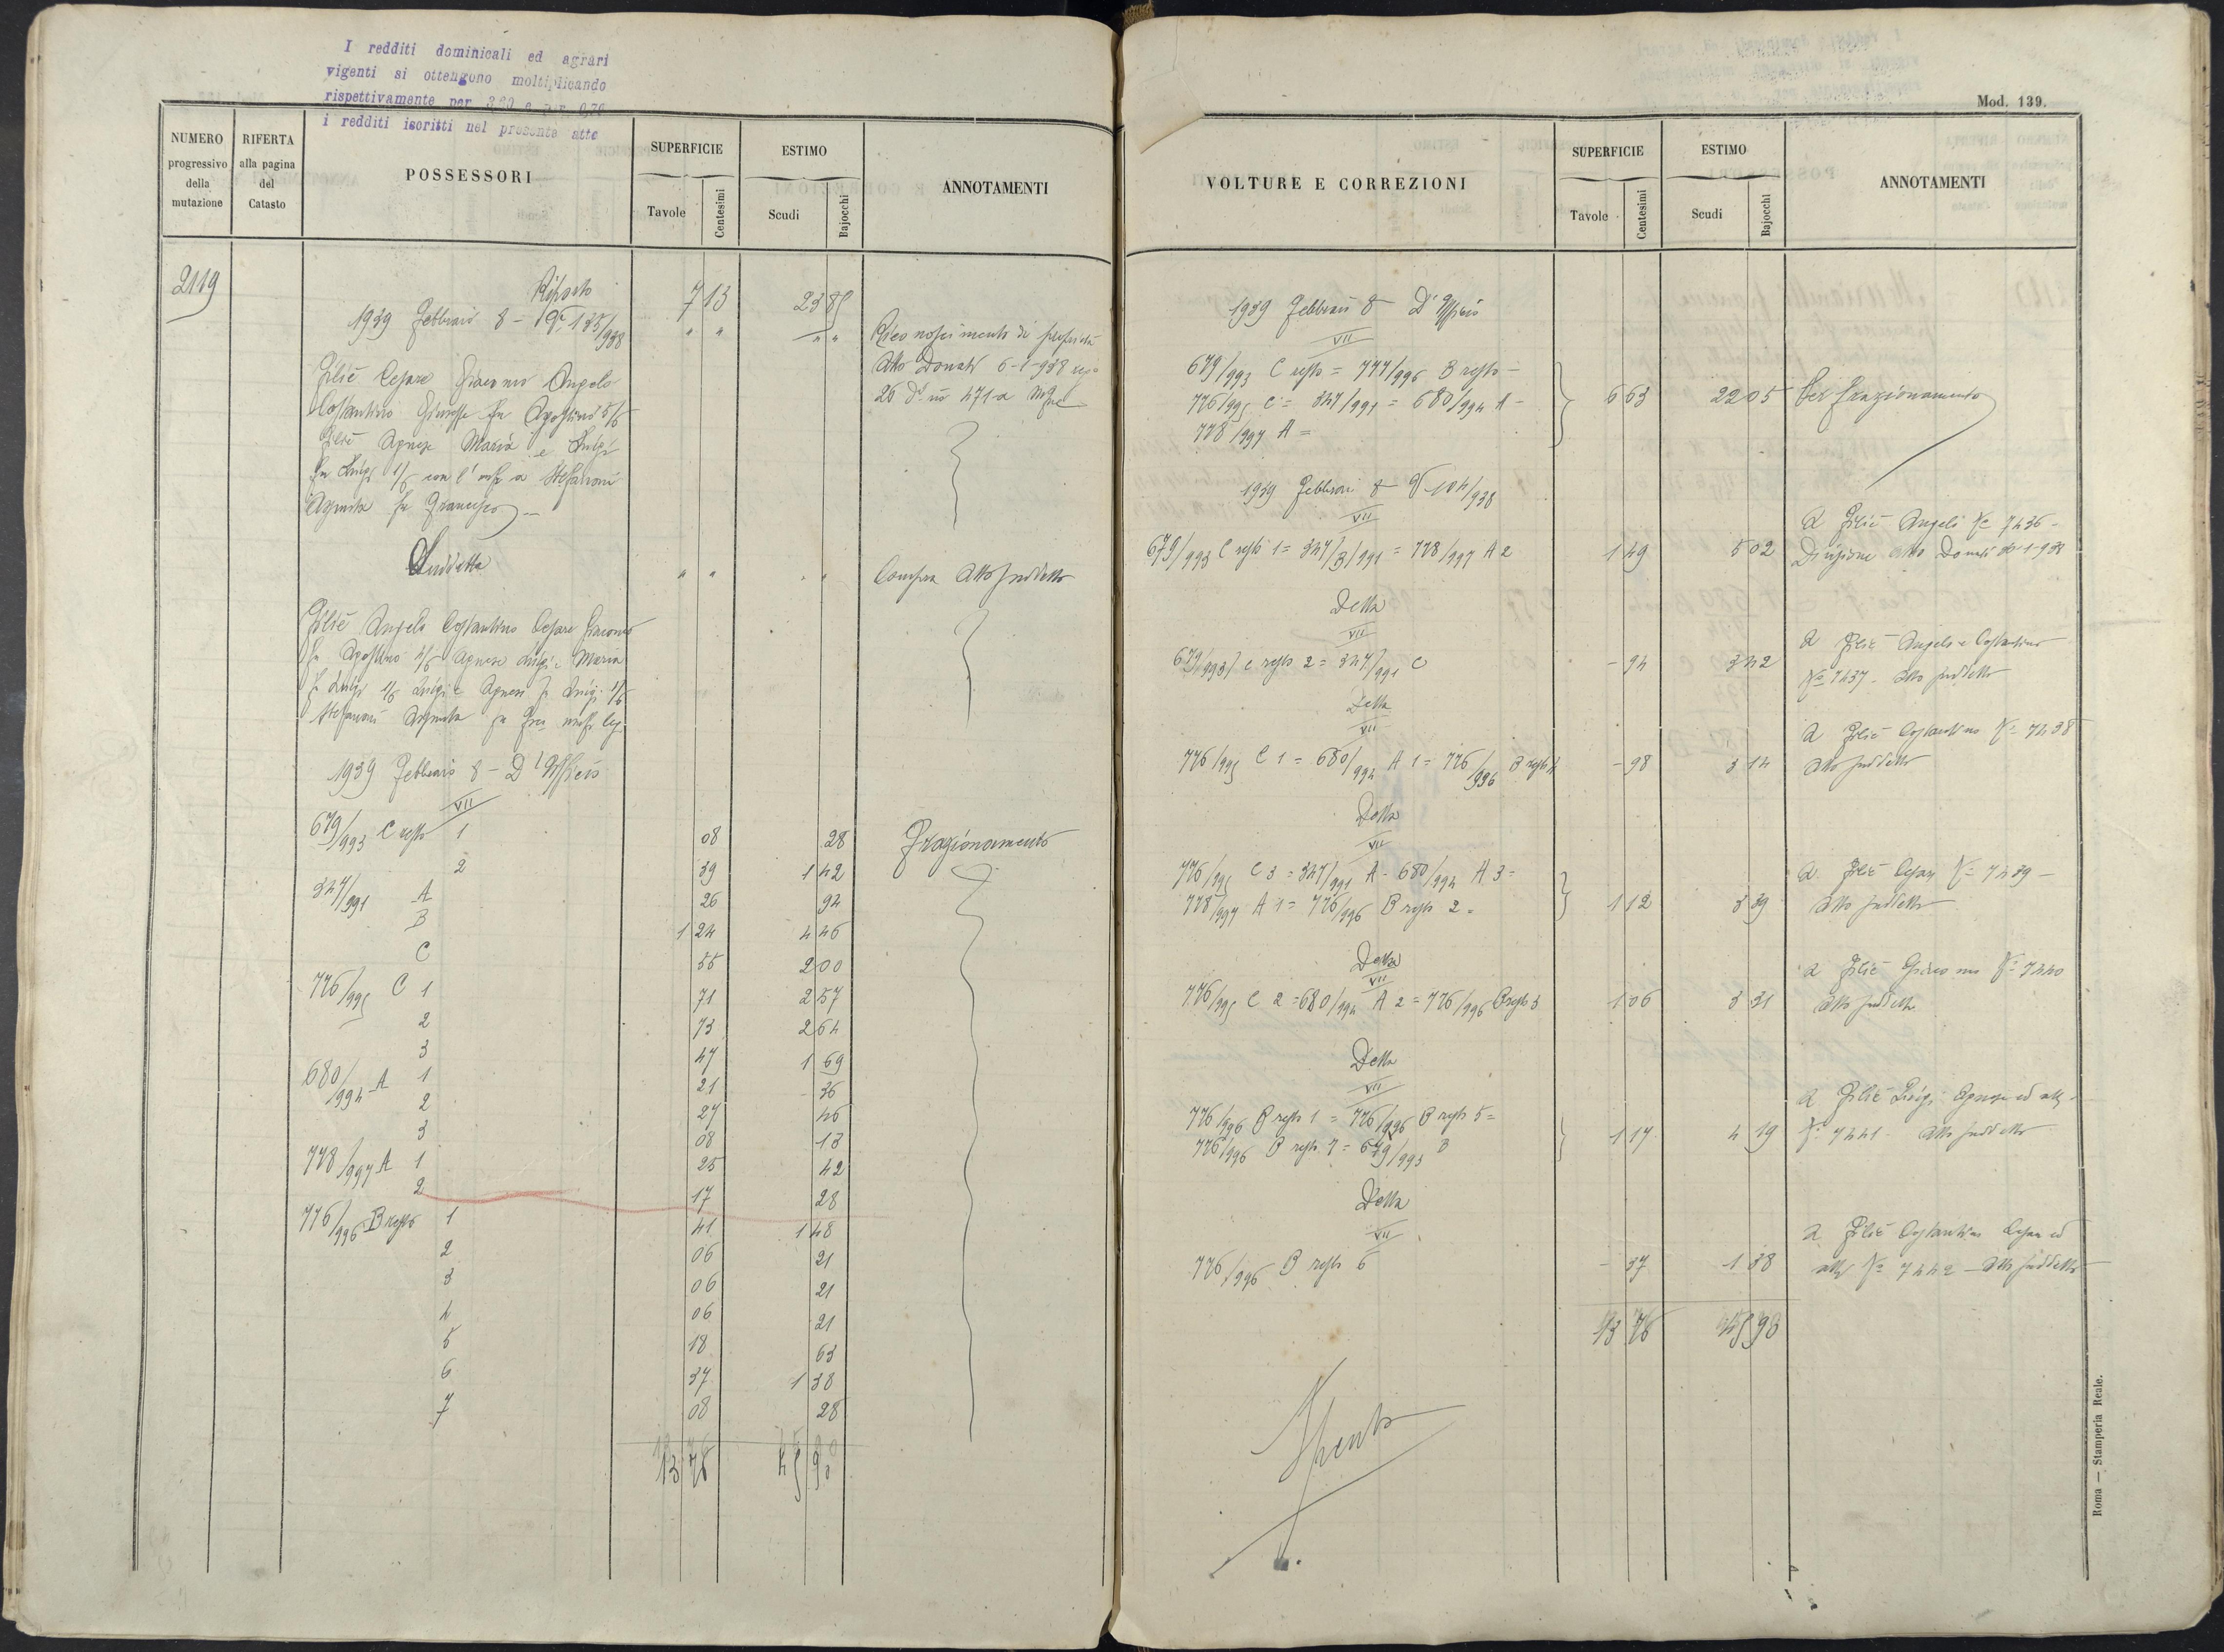 I redditi dominicali ed agrari
vigenti si ottengono moltiplicando
rispettivamente per 3,20 e per 0,76
i redditi iscritti nel presente atto
NUMERO progressivo della mutazione
RIFERTA alla pagina del Catasto
POSSESSORI
SUPERFICIE
Tavole Centesimi
ESTIMO
Scudi Bajocchi
ANNOTAMENTI
2119
Riporto 7 13 23 85
1939 Febbraio 8 - 135/938 " " " " Riconoscimento di proprietà
atto Donati 6-1-938
Cesare Giacomo Angelo
26 471
Costantino Giuseppe fu Agostino 5/6
Agnese Maria e Luigi
fu Luigi 1/6 con l'usf a Stefanoni
Agnesa fu Francesco
Suddetta " " " " Compra atto suddetto
Angelo Costantino Cesare Giacomo
fu Agostino Agnese Luigi e Maria
fu Luigi 1/6 Luigi e Agnese fu Luigi 1/6
Stefanoni fu
1939 Febbraio 8 - D'Ufficio
VII
679/993 C resto 1 08 28 Frazionamento
2 39 1 42
347/991 A 26 94
B 1 24 4 46
C 55 2 00
776/995 C 1 71 2 57
2 73 2 64
3 47 1 69
680/994 A 1 21 36
2 27 46
3 08 13
778/997 A 1 25 42
2 17 28
776/996 B resto 1 41 1 48
2 06 21
3 06 21
4 06 21
5 18 63
6 37 1 38
7 08 28
13 76 45 90
Mod. 139.
VOLTURE E CORREZIONI
SUPERFICIE
Tavole Centesimi
ESTIMO
Scudi Bajocchi
ANNOTAMENTI
1939 Febbraio 8 D'Ufficio
VII
679/993 C resto = 777/996 B resto -
776/995 C = 347/991 = 680/994 A - 6 63 22 05 Per frazionamento
778/997 A =
1939 Febbraio 8 - 104/938
VII
A Angelo N° 7436 -
679/993 C resto 1 = 347/B/991 = 778/997 A 2 1 49 5 02 Divisione atto Donati
Detta
VII
A Angelo e Costantino
679/993 C resto 2 = 347/991 C - 94 3 42 N° 7437 - atto suddetto
Detta
VII
A Costantino N° 7438
776/995 C 1 = 680/994 A 1 = 776/996 B resto 4 - 98 3 14 atto suddetto
Detta
VII
776/995 C 3 = 347/991 A - 680/994 A 3 = A Cesare N° 7439 -
778/997 A 1 = 776/996 B resto 2 = 1 12 3 39 atto suddetto
Detta
VII
A Giacomo N° 7440
776/995 C 2 = 680/994 A 2 = 776/996 B resto 3 1 06 3 31 atto suddetto
Detta
VII
A Luigi Agnese ed altri -
776/996 B resto 1 = 776/996 B resto 5 =
776/996 B resto 7 = 679/993 B 1 17 4 19 N° 7441 - atto suddetto
Detta
VII
A Costantino Cesare ed
776/996 B resto 6 - 37 1 38 altri N° 7442 - atto suddetto
13 76 45 90
Spento
Roma — Stamperia Reale.